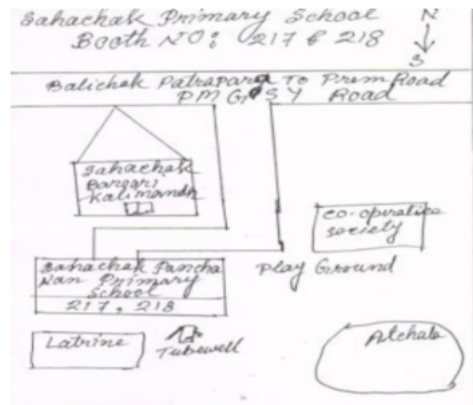 Sahachak Primary School
Booth NO: 217 & 218
N
S
Balichak Patrapara To Prem Road
PMGSY Road
Sahachak
Bargari
Kalimandir
Co-operative
society
Sahachak Pancha
nan Primary
School
217, 218
Play Ground
Latrine
Tubewell
Atchala